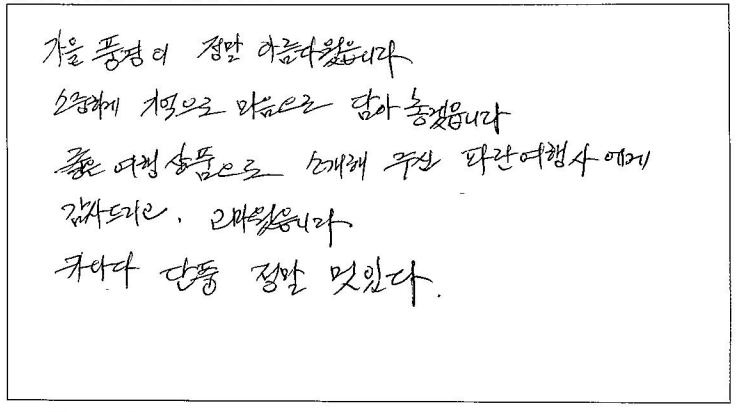 가을 풍경이 정말 아름다웠읍니다
소중하게 기억으로 마음으로 담아 놓겠읍니다
좋은 여행상품으로 소개해 주신 파란여행사에게
감사드리고, 고마웠읍니다.
카나다 단풍 정말 멋있다.